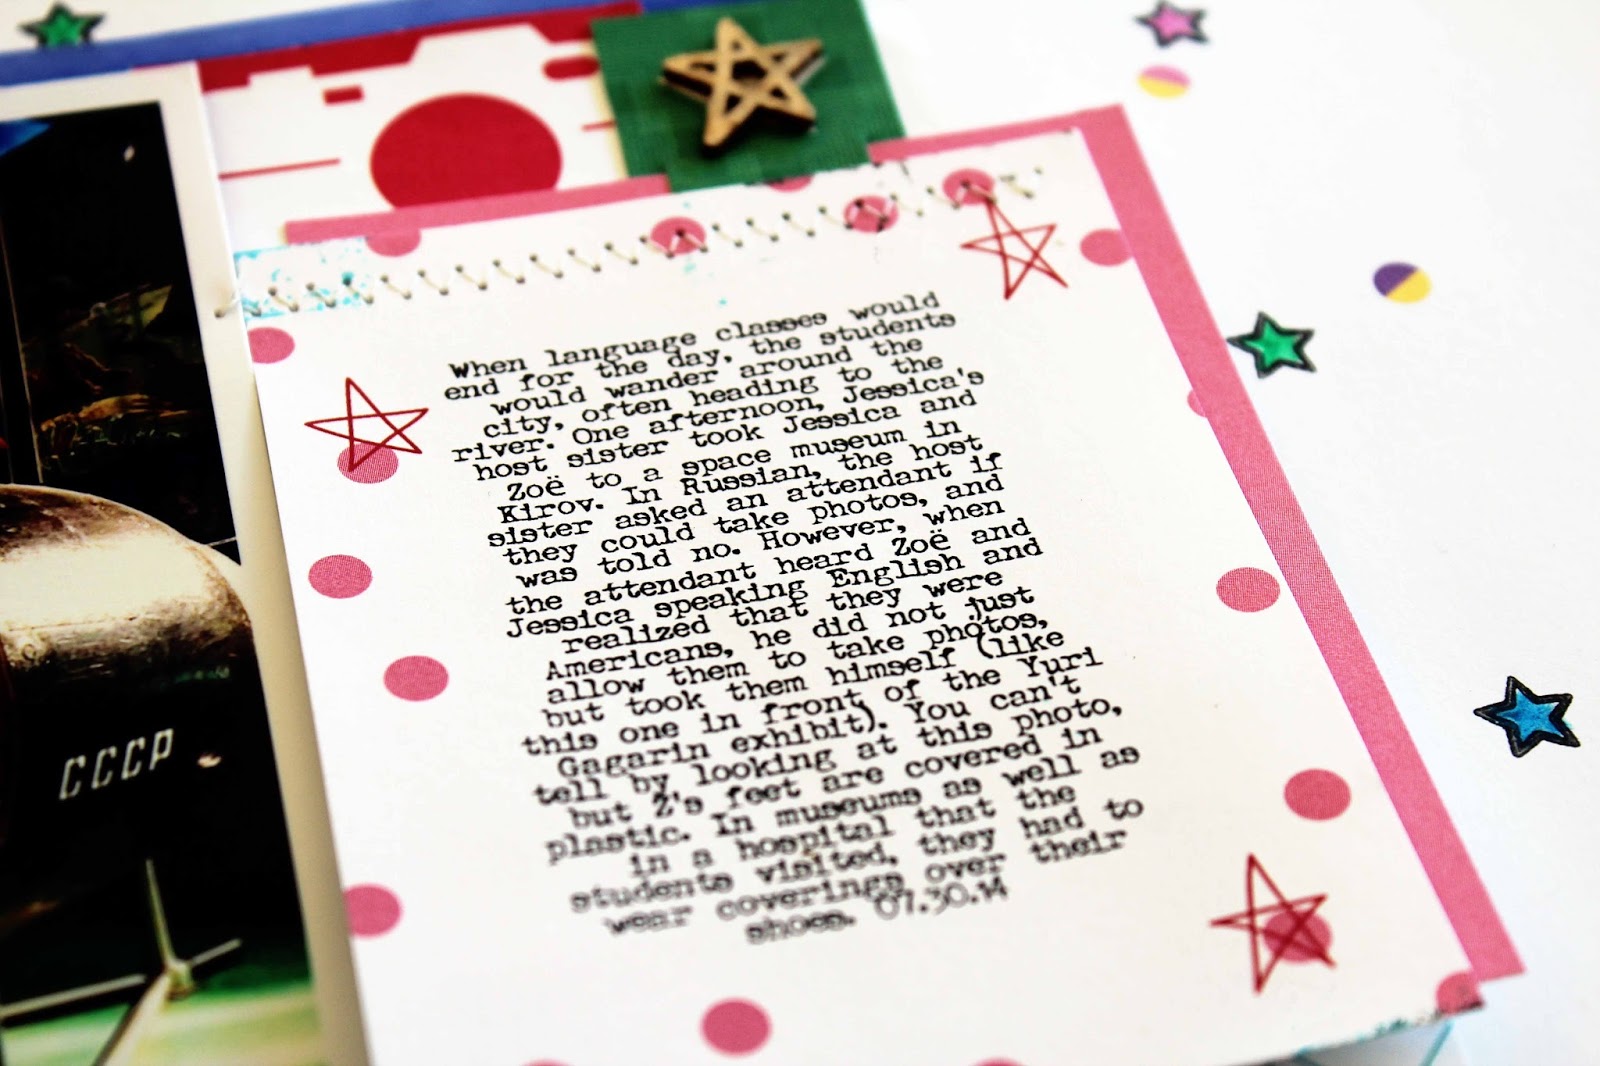 When language classes would
end for the day, the students
would wander around the
city, often heading to the
river. One afternoon, Jessica's
host sister took Jessica and
Zoë to a space museum in
Kirov. In Russian, the host
sister asked an attendant if
they could take photos, and
was told no. However, when
the attendant heard Zoë and
Jessica speaking English and
realized that they were
Americans, he did not just
allow them to take photos,
but took them himself (like
this one in front of the Yuri
Gagarin exhibit). You can't
tell by looking at this photo,
but Z's feet are covered in
plastic. In museums as well as
in a hospital that the
students visited, they had to
wear coverings over their
shoes. 07.30.14
CCCP